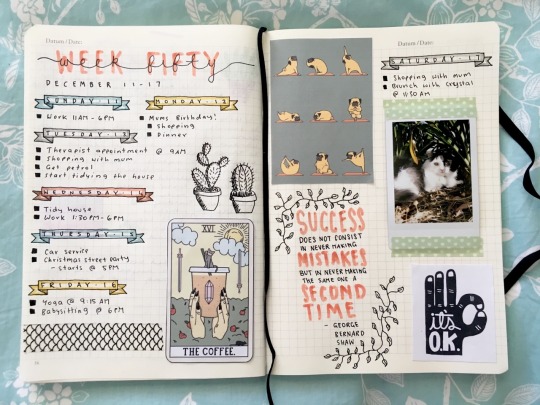 Datum / Date:
WEEK FIFTY
week fifty
DECEMBER 11-17
SUNDAY · 11
Work 11AM - 6PM
MONDAY · 12
Mums Birthday!
Shopping
Dinner
TUESDAY · 13
Therapist appointment @ 9AM
Shopping with mum
Get petrol
Start tidying the house
WEDNESDAY · 14
Tidy house
Work 1:30PM - 6PM
THURSDAY · 15
Car service
Christmas street party
- starts @ 5PM
FRIDAY · 16
Yoga @ 9:15 AM
Babysitting @ 6PM
XVI
THE COFFEE.
SUCCESS
DOES NOT CONSIST
IN NEVER MAKING
MISTAKES
BUT IN NEVER MAKING
THE SAME ONE A
SECOND
TIME
- GEORGE
BERNARD
SHAW
Datum / Date:
SATURDAY · 17
Shopping with mum
Brunch with Crystal
@ 11:30 AM
it's
O.K.